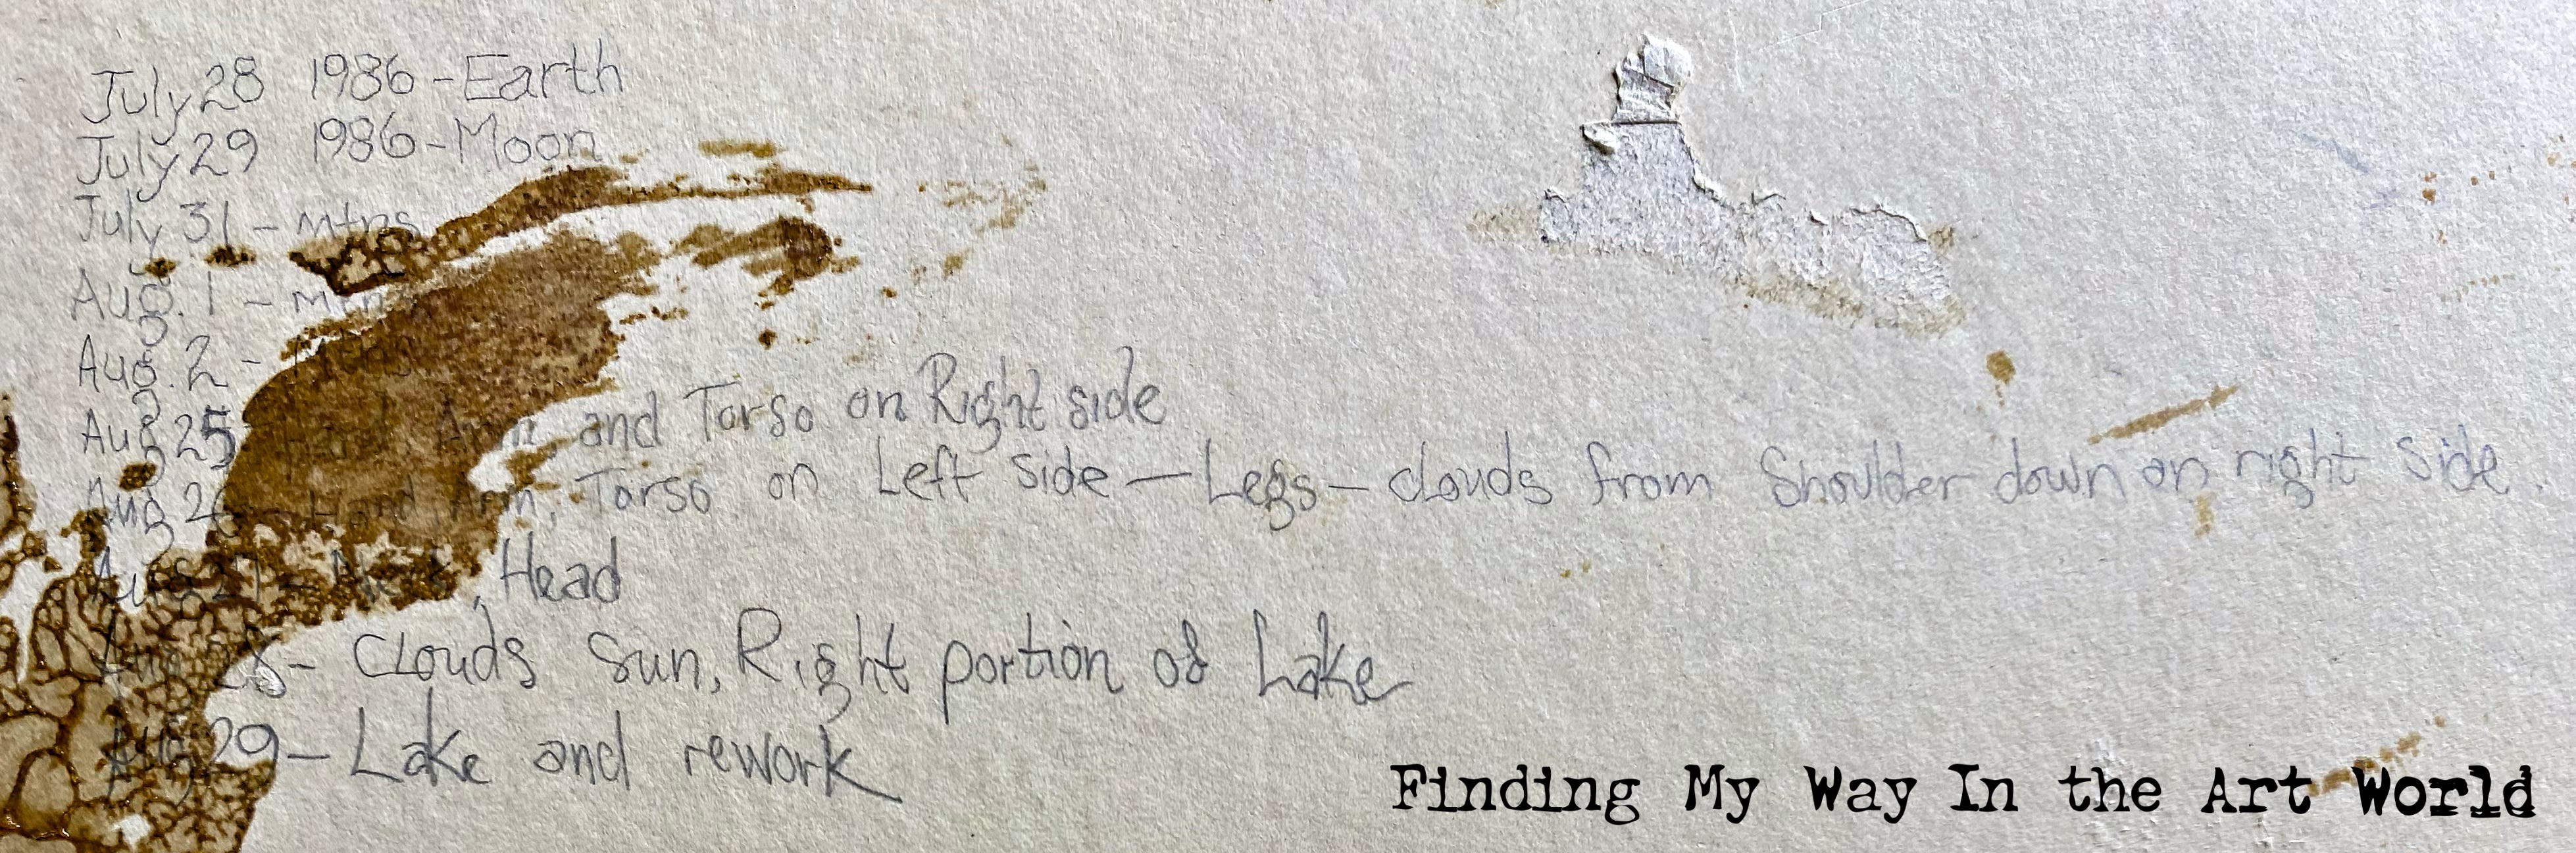 July 28 1986 - Earth
July 29 1986 - Moon
July 31 - mtns
Aug. 1 - mtns
Aug. 2 - Mtns
Aug 25 - Hand, Arm, and Torso on Right side
Aug 26 - Hand, Arm, Torso on Left side - Legs - clouds from Shoulder down on right side.
Aug 27 - Neck, Head
Aug 28 - Clouds Sun, Right portion of Lake
Aug 29 - Lake and rework
Finding My Way In the Art World